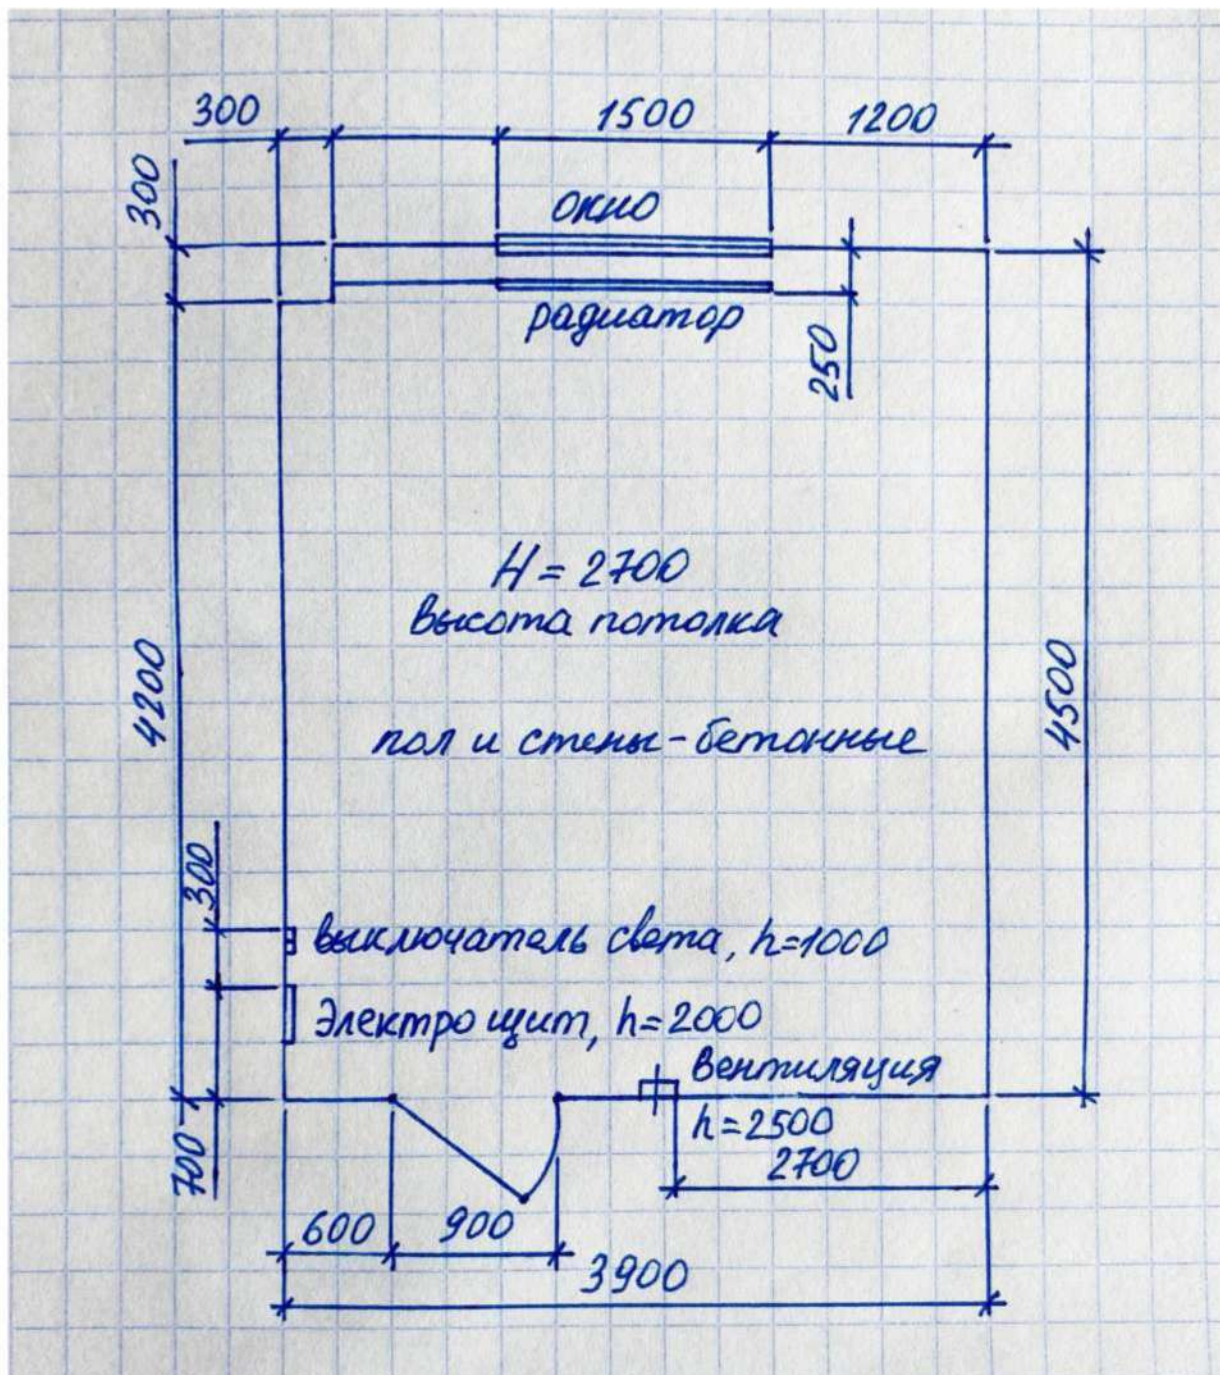 300
1500
1200
300
окно
радиатор
250
H = 2700
Высота потолка
4200
4500
пол и стены-бетонные
300
выключатель света, h=1000
Электрощит, h=2000
Вентиляция
h=2500
700
2700
600
900
3900